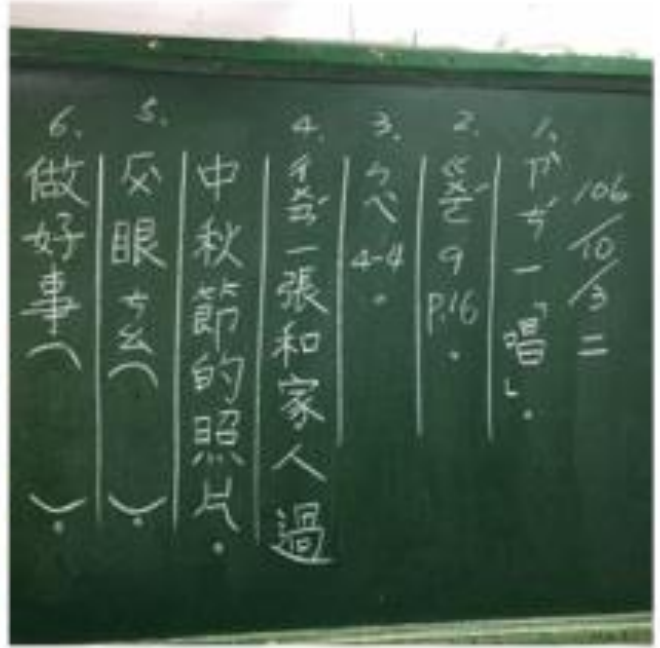 106/10/3 二
1. 一「唱」。
2. ㄍㄨㄛˊ 9 P.16。
3. ㄅㄟˋ 4-4。
4. ㄔㄨㄢˊ一張和家人過
中秋節的照片。
5. 眼ㄘㄠ( )。
6. 做好事( )。